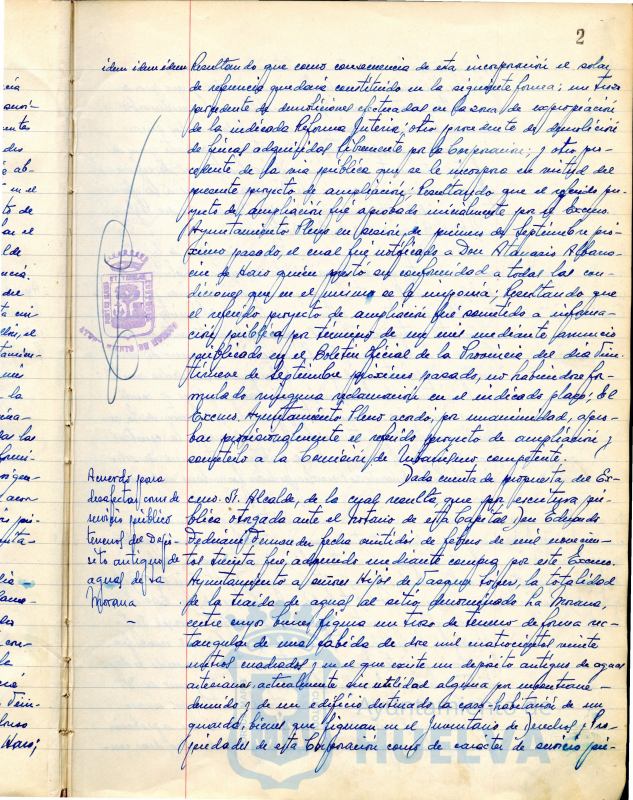 2
idem idem idem
Resultando que como consecuencia de esta incorporación el solar
de referencia quedará constituido en la siguiente forma; un trozo
procedente de demoliciones efectuadas en la zona de expropiación
de la indicada Reforma Interior, otro procedente de demolición
de fincas adquiridas libremente por la Corporación; y otro pro-
cedente de la via pública que se le incorpora en virtud del
presente proyecto de ampliación; Resultando que el referido pro-
yecto de ampliación fué aprobado inicialmente por el Excmo.
Ayuntamiento Pleno en sesión de primero de Septiembre pró-
ximo pasado, el cual fué notificado a Don Atanasio
de Haro quién prestó su conformidad a todas las con-
diciones que en el mismo se le imponía; Resultando que
el referido proyecto de ampliación fué sometido a informa-
ción pública por término de un mes mediante anuncio
publicado en el Boletin Oficial de la Provincia del dia
de Septiembre próximo pasado, no habiéndose for-
mulado ninguna reclamación en el indicado plazo; El
Excmo. Ayuntamiento Pleno acordó, por unanimidad, apro-
bar provisionalmente el referido proyecto de ampliación y
someterlo a la Comisión de Urbanismo competente.
Acuerdo para
desafectar como de
servicio público
terrenos del Depó-
sito antiguo de
aguas de La
Morana
Dada cuenta de propuesta del Ex-
cmo. Sr. Alcalde, de la cual resulta que por escritura pú-
blica otorgada ante el Notario de esta Capital Don Eduardo
fecha veintidos de febrero de mil novecien-
tos treinta fué adquirido mediante compra por este Excmo.
Ayuntamiento a señores Hijos de la totalidad
de la traida de aguas al sitio denominado La Morana,
entre cuyos bienes figura un trozo de terreno de forma rec-
tangular de una cabida de doce mil cuatrocientos veinte
metros cuadrados y en el que existe un depósito antiguo de aguas
artesianas actualmente sin utilidad alguna por
y de un edificio destinado a casa-habitación de un
guarda, bienes que figuran en el Inventario de Derechos y Pro-
piedades de esta Corporación como de caracter de servicio pú-
Ayuntamiento
HUELVA